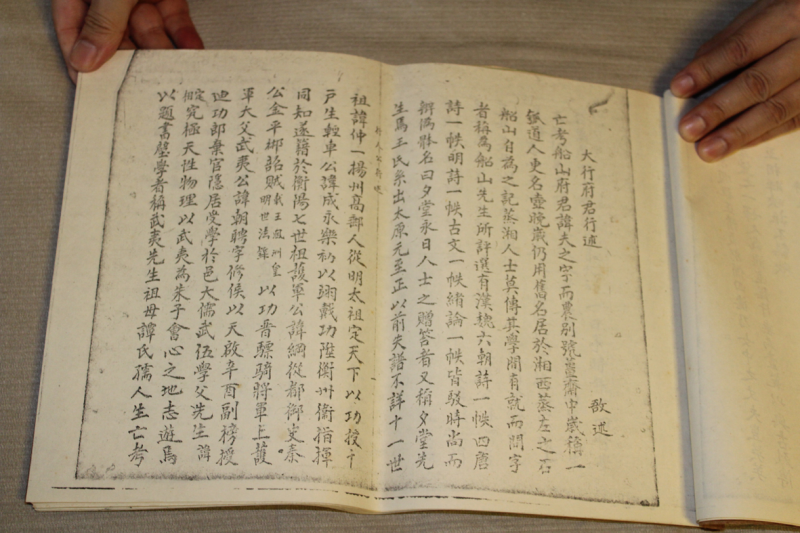 大行府君行述 敔述
亡考船山府君諱夫之字而農別號薑齋中歲稱一
瓠道人更名壺晚歲仍用舊名居於湘西蒸左之石
船山自為之記蒸湘人士莫傳其學間有就而問字
者稱為船山先生所評選有漢魏六朝詩一帙四唐
詩一帙明詩一帙古文一帙緒論一帙皆駁時尚而
辨偽體名曰夕堂永日人士之贈答者又稱夕堂先
生焉王氏系出太原元至正以前失譜不詳十一世
祖諱仲一揚州高郵人從明太祖定天下以功授千
戶生輕車公諱成永樂初以翊戴功陞衡州衛指揮
同知遂籍於衡陽七世祖護軍公諱綱從都御史秦
公金平郴詔賊載王弇州皇明世法錄以功晉驃騎將軍上護
軍大父武夷公諱朝聘字修侯以天啟辛酉副榜授
迪功郎棄官隱居受學於邑大儒武伍學父先生諱
定相究極天性物理以武夷為朱子會心之地志遊焉
以題書壁學者稱武夷先生祖母譚氏孺人生亡考